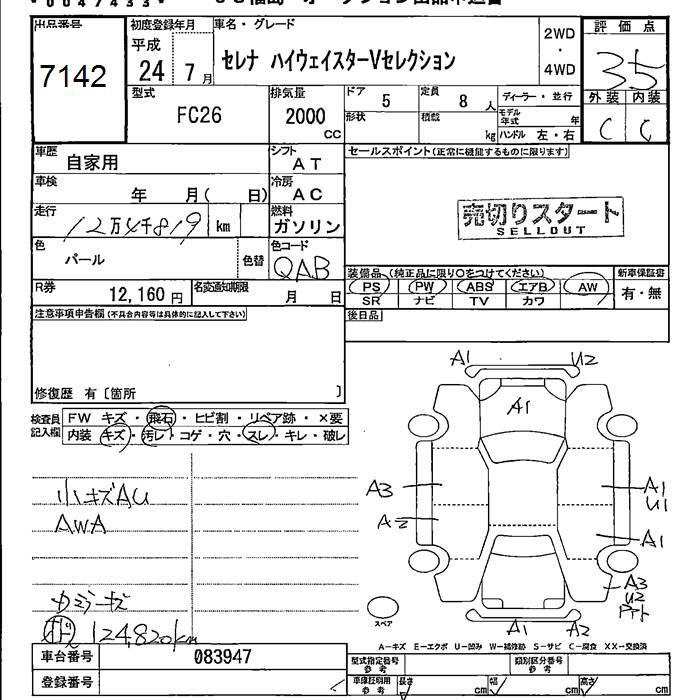 出品番号
7142
初度登録年月
平成
24 7月
車名・グレード
セレナ ハイウェイスターVセレクション
2WD
・
4WD
評価点
35
外装 内装
C C
型式
FC26
排気量
2000
CC
ドア
5
定員
8人
ディーラー・並行
形状
積載
kg
モデル年式 年
ハンドル 左・右
車歴
自家用
シフト
AT
セールスポイント(正常に機能するものに限ります)
車検
年 月( 日)
冷房
AC
売切りスタート
SELLOUT
走行
12万4千819 km
燃料
ガソリン
色
パール
色替
色コード
QAB
装備品(純正品に限り○をつけてください)
新車保証書
PS PW ABS エアB AW
有・無
SR ナビ TV カワ
R券
12,160円
名変通知期限
月 日
後日品
注意事項申告欄(不具合内容等は具体的に記入して下さい)
修復歴 有〔箇所 〕
検査員記入欄
FW キズ・飛石・ヒビ割・リペア跡・×要
内装 キズ・汚レ・コゲ・穴・スレ・キレ・破レ
小キズAU
AWA
カミラーキズ
124,820km
A1 U2
A1
A3
A1
U1
A2
A1
A3
U2
スペア
A1 A2
A-キズ E-エクボ U-凹み W-補修跡 S-サビ C-腐食 XX-交換済
車台番号
083947
登録番号
型式指定番号
参考
類別区分番号
参考
車庫証明用
参考
長さ cm
幅 cm
高さ cm